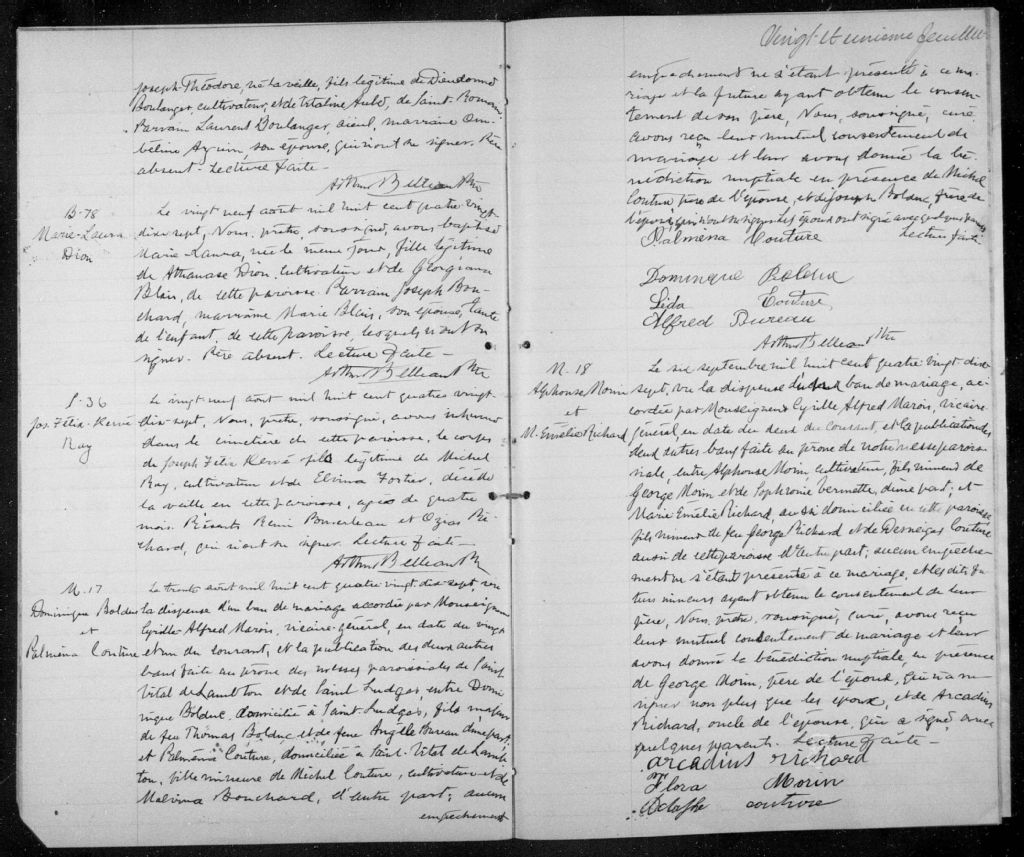 Joseph Théodore, né la veille, fils légitime de Dieudonné
Boulanger, cultivateur, et de Vitaline Aubé, de Saint-Romain.
Parrain Laurent Boulanger, aïeul, marraine Om-
beline son épouse, qui n'ont su signer. Père
absent. Lecture faite -
Arthur Belleau Ptre
B-78
Marie-Laura
Dion
Le vingt neuf août mil huit cent quatre vingt
dix-sept, Nous, prêtre, soussigné, avons baptisé
Marie-Laura, née le même jour, fille légitime
de Athanase Dion, cultivateur et de Géorgiana
Blais, de cette paroisse. Parrain Joseph Bou-
chard, marraine Marie Blais, son épouse, tante
de l'enfant, de cette paroisse, lesquels n'ont su
signer. Père absent. Lecture faite -
Arthur Belleau Ptre
S-36
Jos. Félix-Hervé
Ray
Le vingt-neuf août mil huit cent quatre vingt-
dix-sept, Nous, prêtre, soussigné, avons inhumé
dans le cimetière de cette paroisse, le corps
de Joseph Félix Hervé fils légitime de Michel
Ray, cultivateur et de Elvina Fortier, décédé
la veille en cette paroisse, agé de quatre
mois. Présents Rémi Pomerleau et Ozias Ri-
chard, qui n'ont su signer. Lecture faite -
Arthur Belleau Ptr
M. 17
Dominique Bolduc
et
Palména Couture
Le trente août mil huit cent quatre vingt dix-sept, vu
la dispense d'un ban de mariage accordée par Monseigneur
Cyrille Alfred Marois, vicaire-général, en date du vingt
et un du courant, et la publication des deux autres
bans faite au prône des messes paroissiales de Saint
Vital de Lambton et de Saint Ludger, entre Domi
nique Bolduc, domicilié à Saint-Ludger, fils majeur
de feu Thomas Bolduc et de feue Angèle Bureau d'une part;
et Palména Couture, domiciliée à Saint-Vital de Lamb-
ton, fille mineure de Michel Couture, cultivateur et de
Malvina Bouchard, d'autre part; aucun
empêchement
Vingt et unième feuillet
empêchement ne s'étant présenté à ce ma-
riage et la future ayant obtenu le consen-
tement de son père, Nous, soussigné, curé,
avons reçu leur mutuel consentement de
mariage et leur avons donné la bé-
nédiction nuptiale en présence de Michel
Couture père de l'épouse, et de Joseph Bolduc, frère de
l'époux, qui n'ont su signer, les époux ont signé avec quelques parents.
Palména Couture Lecture faite.
Dominique Bolduc
Lida Couture
Alfred Bureau
Arthur Belleau Ptre
M. 18
Alphonse Morin
et
M. Emélie Richard
Le six septembre mil huit cent quatre vingt-dix-
sept, vu la dispense d'un ban de mariage, ac-
cordée par Monseigneur Cyrille Alfred Marois, vicaire-
général, en date du deux du courant, et la publication des
deux autres bans faite au prône de notre messe parois-
siale, entre Alphonse Morin, cultivateur, fils mineur de
George Morin et de Sophronie Vermette, d'une part; et
Marie Emélie Richard, aussi domiciliée en cette paroisse
fille mineure de feu George Richard et de Desneiges Couture
aussi de cette paroisse d'autre part; aucun empêche-
ment ne s'étant présenté à ce mariage, et les dits fu
turs mineurs ayant obtenu le consentement de leur
père, Nous, prêtre, soussigné, curé, avons reçu
leur mutuel consentement de mariage et leur
avons donné la bénédiction nuptiale, en présence
de George Morin, père de l'époux, qui n'a su
signer non plus que les époux, et de Arcadius
Richard, oncle de l'épouse, qui a signé avec
quelques parents. Lecture faite -
arcadius richard
Flora Morin
couture